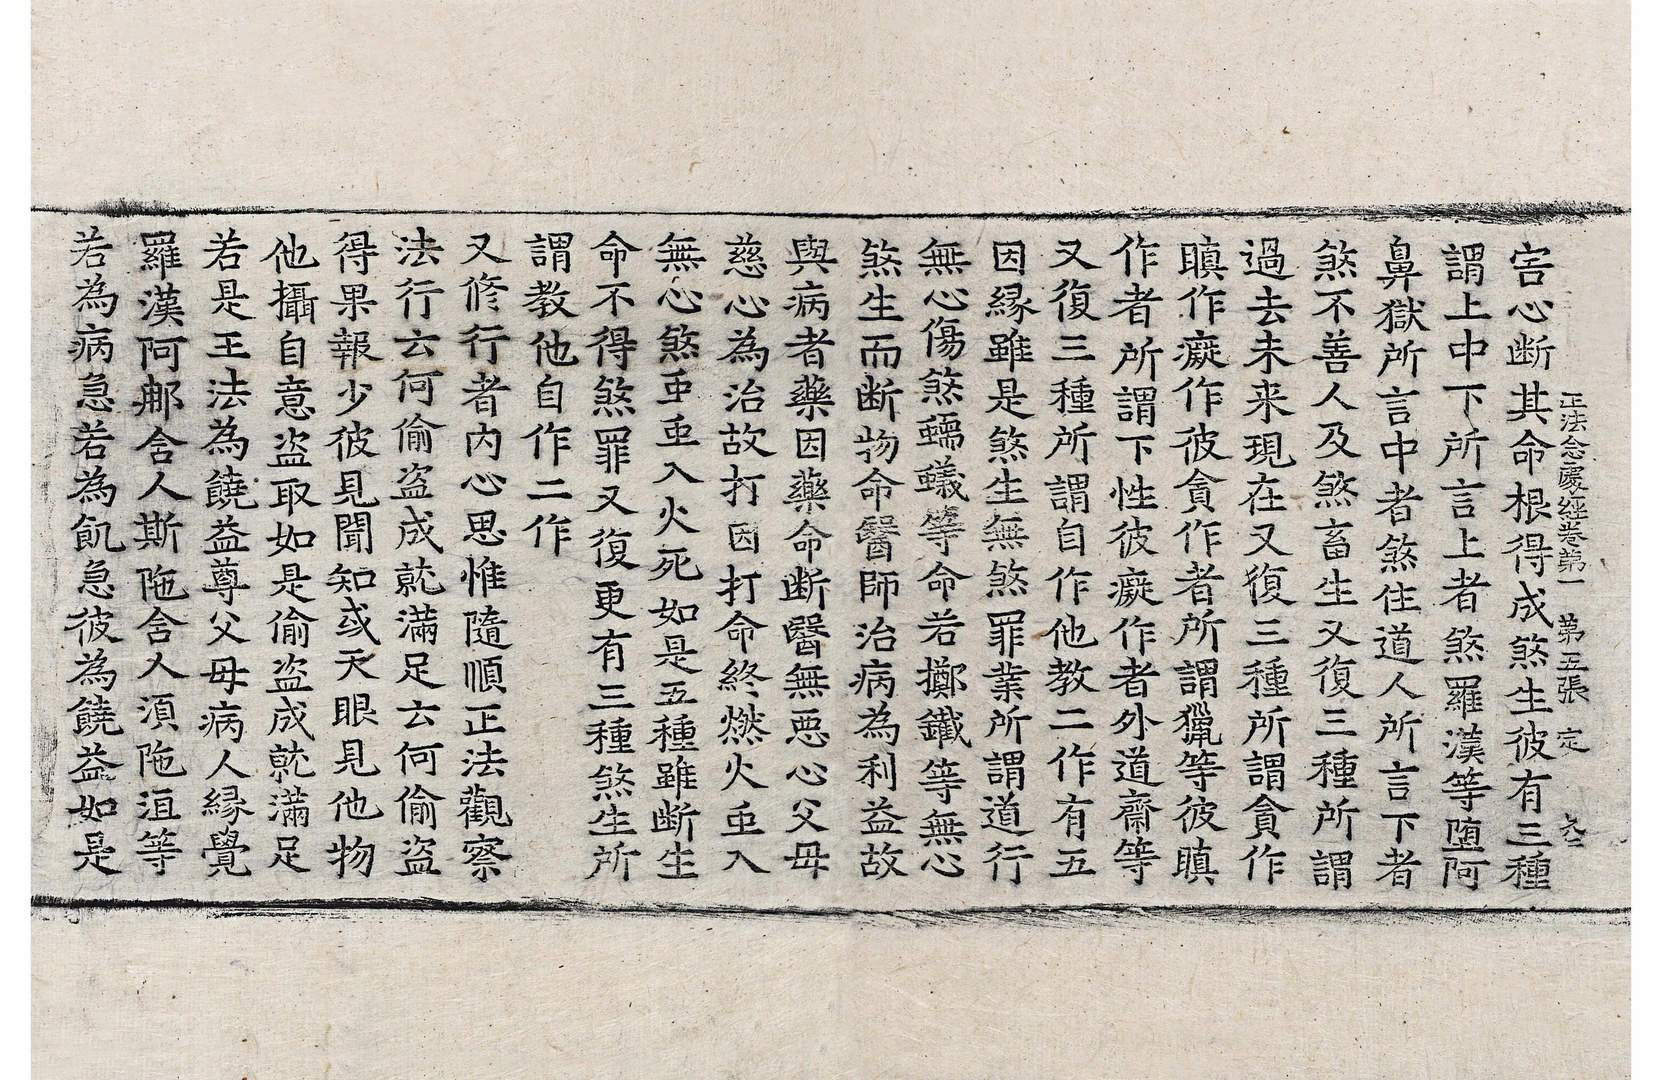 正法念處經卷第一　第五張　定
害心断其命根得成煞生彼有三種
謂上中下所言上者煞羅漢等堕阿
鼻獄所言中者煞住道人所言下者
煞不善人及煞畜生又復三種所謂
過去未来現在又復三種所謂貪作
瞋作癡作彼貪作者所謂獵等彼瞋
作者所謂下性彼癡作者外道齋等
又復三種所謂自作他教二作有五
因緣雖是煞生無煞罪業所謂道行
無心傷煞蠕蟻等命若擲鐵等無心
煞生而断物命醫師治病為利益故
與病者藥因藥命断醫無惡心父母
慈心為治故打因打命終燃火虫入
無心煞虫虫入火死如是五種雖断生
命不得煞罪又復更有三種煞生所
謂教他自作二作
又修行者內心思惟隨順正法觀察
法行云何偷盗成就滿足云何偷盗
得果報少彼見聞知或天眼見他物
他攝自意盗取如是偷盗成就滿足
若是王法為饒益尊父母病人緣覺
羅漢阿那含人斯陁含人湏陁洹等
若為病急若為飢急彼為饒益如是